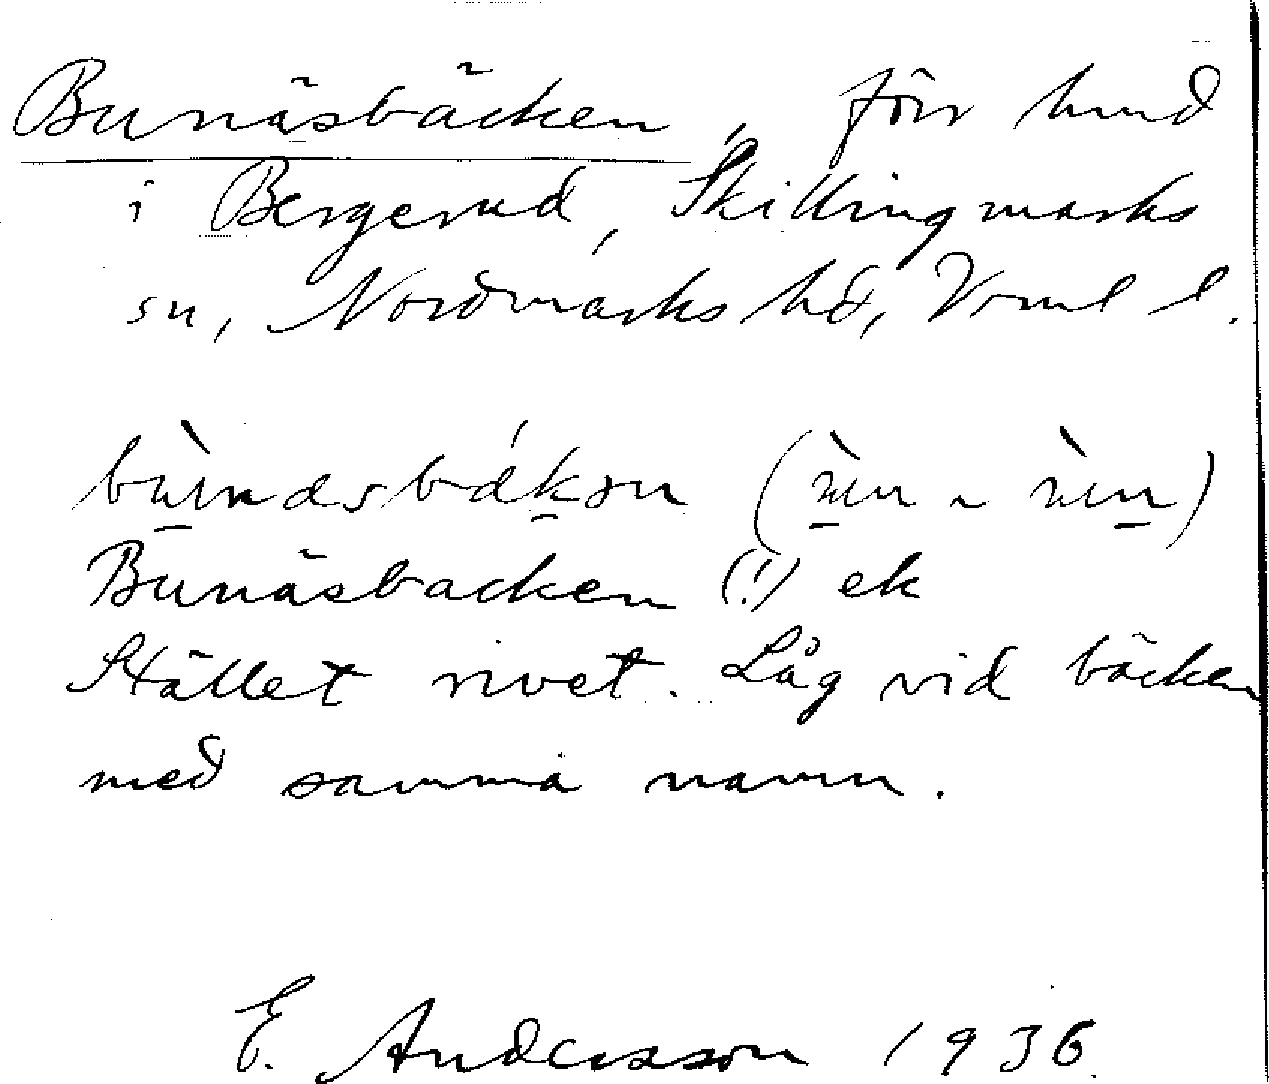 Bunäsbäcken, förr hmd
i Bergerud, Skillingmarks
sn, Nordmarks hd, Vrml l.
Bunäsbacken (!) ek
Stället rivet. Låg vid bäcken
med samma namn.
E. Andersson 1936